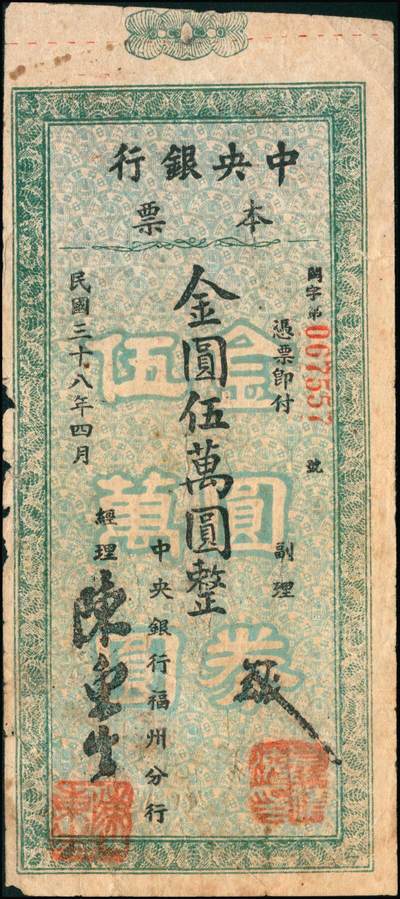 中央銀行
本票
閩字第067557號
憑票即付
副理
金圓伍萬圓整
中央銀行福州分行
經理
民國三十八年四月
金圓券
伍萬圓